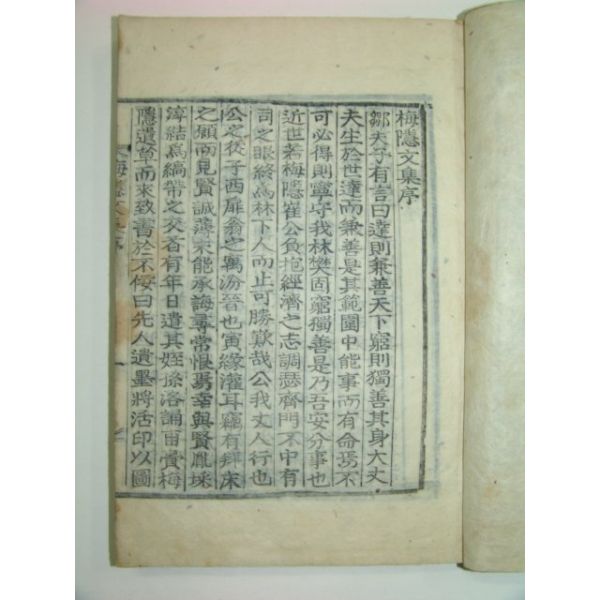 梅隱文集序
鄒夫子有言曰達則兼善天下窮則獨善其身大丈
夫生於世達而兼善是其範圍中能事而有命焉不
可必得則寧守我林樊固窮獨善是乃吾安分事也
近世若梅隱崔公負抱經濟之志調瑟齊門不中有
司之眼終爲林下人而止可勝歎哉公我丈人行也
公之從子西扉翁之寓汾晉也寅緣灌耳竊有拜床
之願而見賢誠薄末能承誨尋常恨焉幸與賢胤埰
淳結爲縞帶之交者有年日遣其姪孫洛誦甫賫梅
隱遺草而來致書於不佞曰先人遺墨將活印以圖
梅隱文集序
一